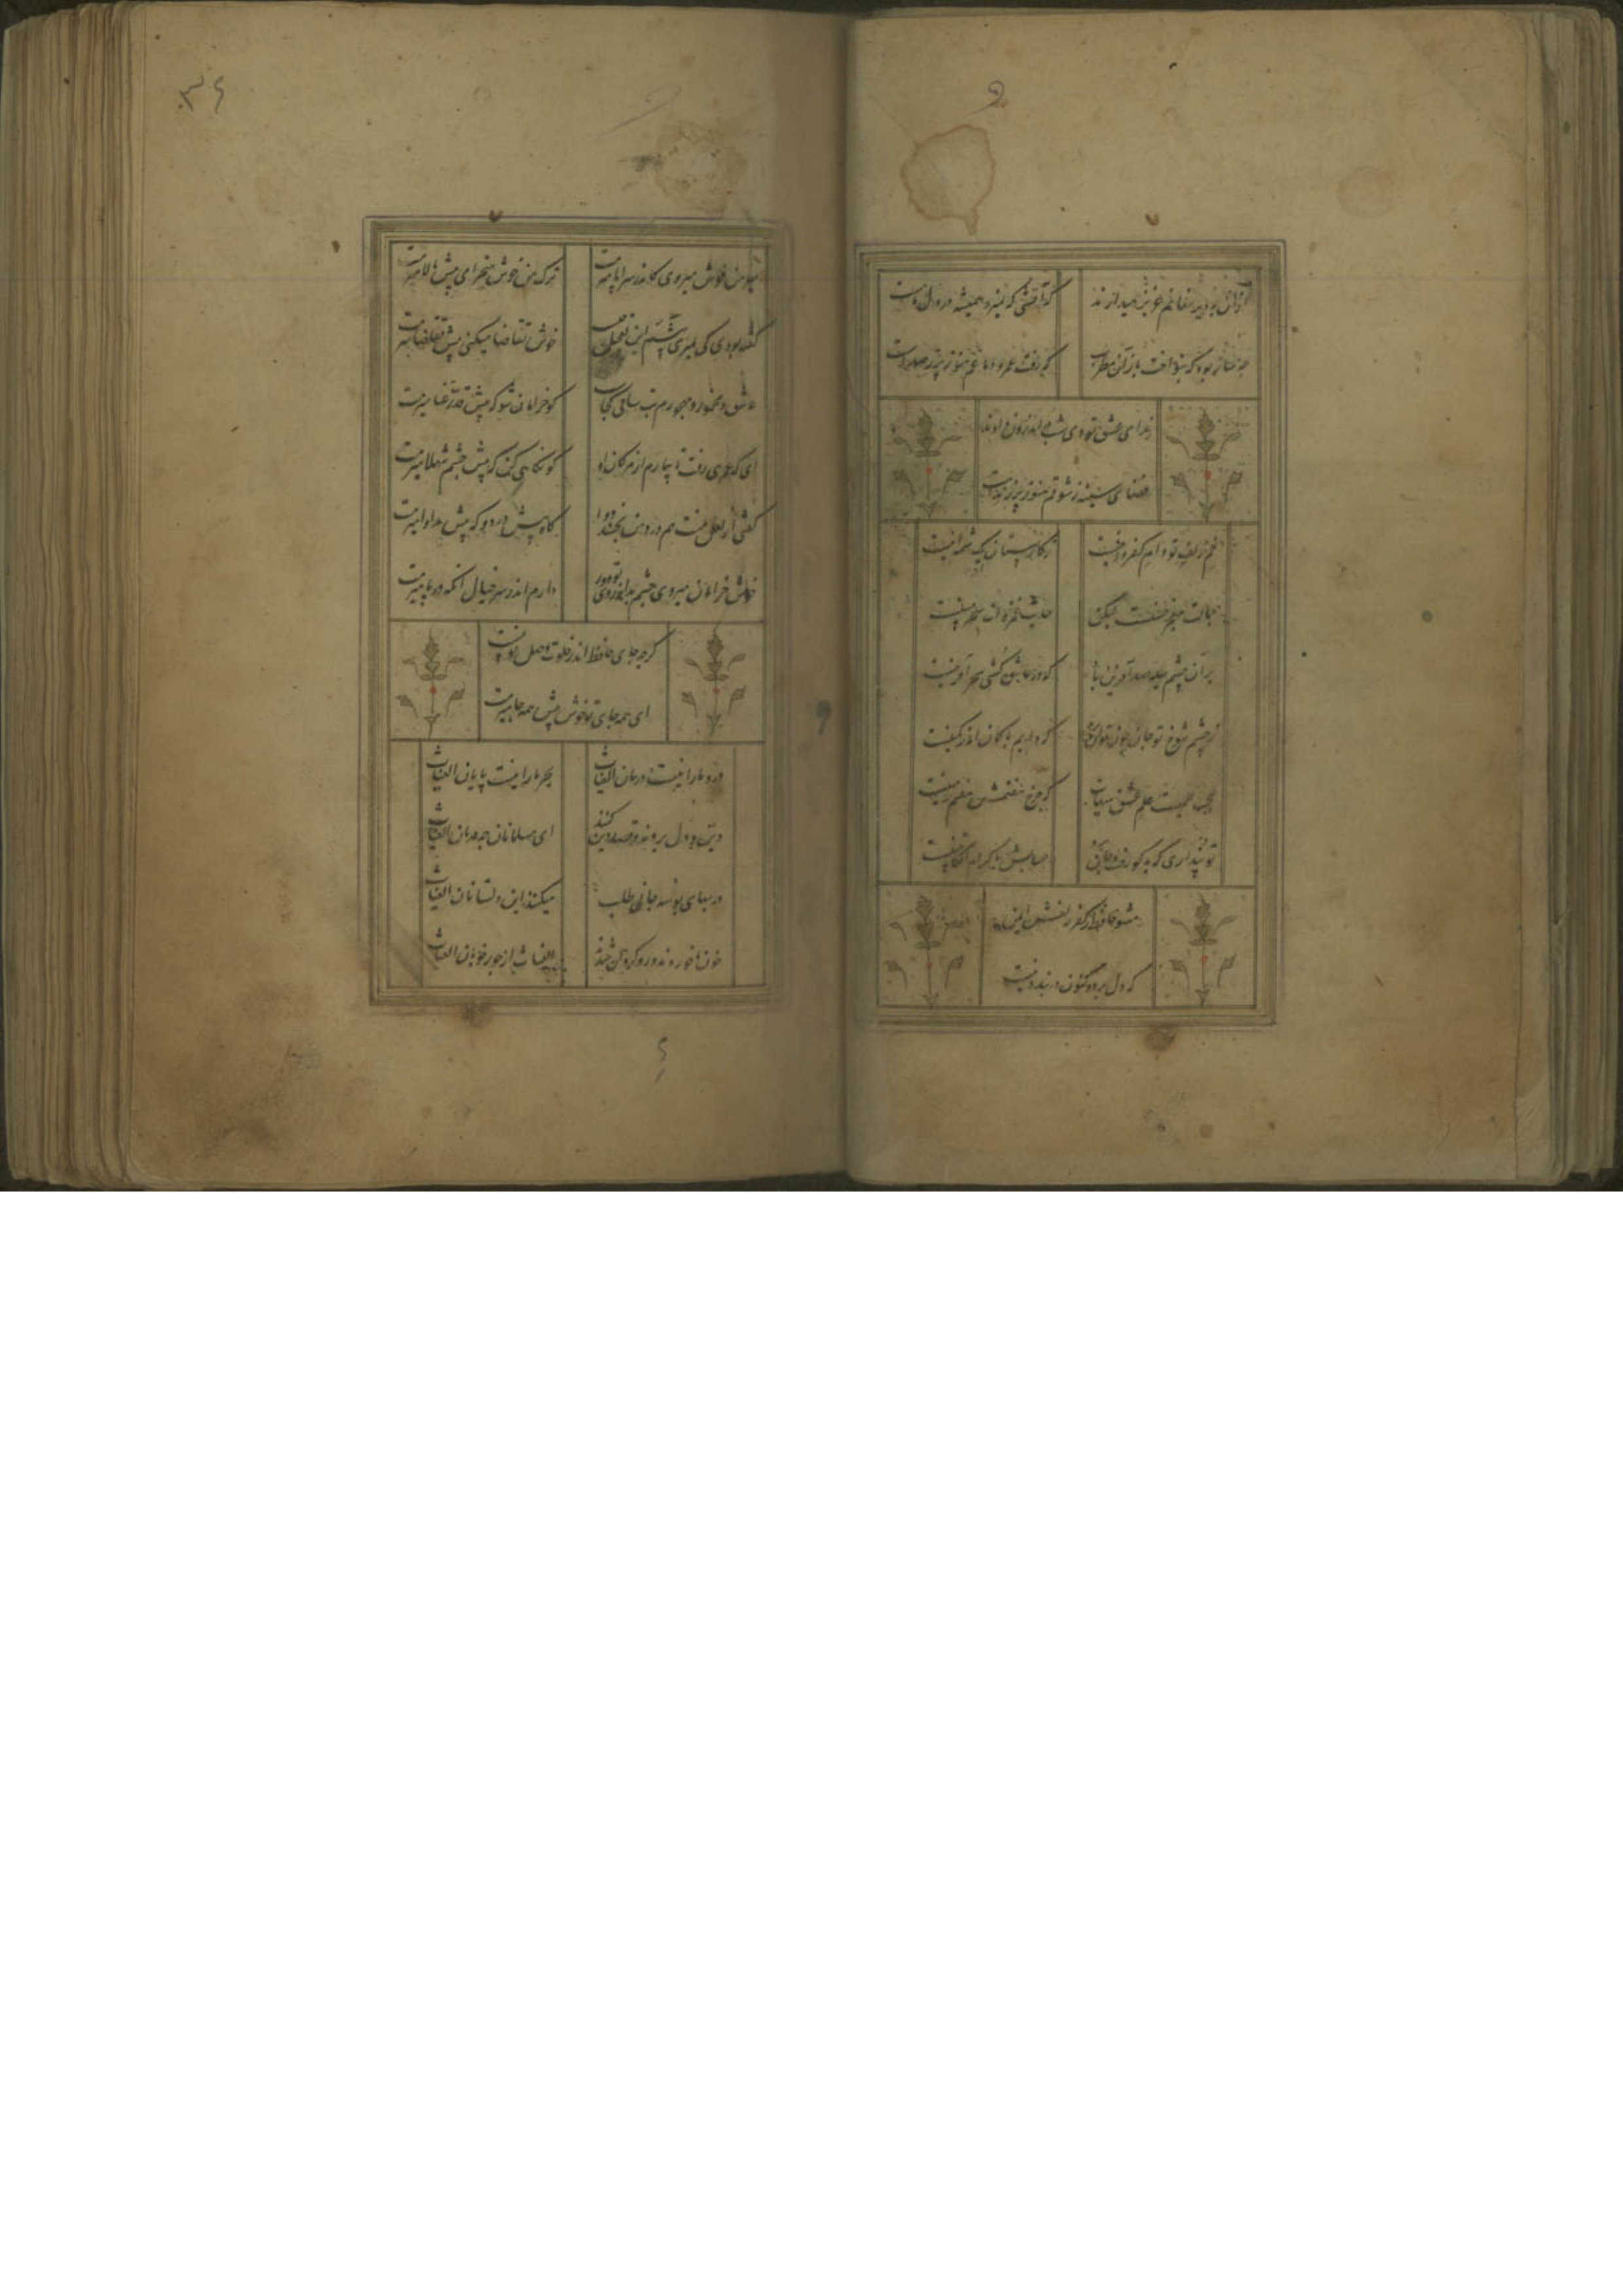 از آن به دیر مغانم عزیز میدارند
که آتشی که نمیرد همیشه در دل ماست
چه ساز بود که بنواخت باز آن مطرب
که رفت عمر و دماغم هنوز پر ز صداست
ندای عشق تو دی شب در اندرون دادند
فضای سینه ز شوقم هنوز پر ز نداست
خم زلف تو دام کفر و دینست
ز کارستان یک شمه اینست
جمالت معجز حسنست لیکن
حدیث غمزه ات سحر مبینست
بر آن چشم سیه صد آفرین باد
که در عاشق کشی سحر آفرینست
ز چشم شوخ تو جان چون توان برد
که دایم با کمان اندر کمینست
عجب علمیست علم عشق
که چرخ هفتمش هفتم زمینست
تو پنداری که بدگو رفت و جان برد
حسابش با کرام الکاتبینست
مشو حافظ ز کفر زلفش ایمن
که دل برد و کنون در بند دینست
۳۶
میر من خوش میروی کاندر سر و پا میرمت
ترک من خوش میخرامی پیش بالا میرمت
گفته بودی کی بمیری پیشم این تعجیل چیست
خوش تقاضا میکنی پیش تقاضا میرمت
عاشق و مخمور و مهجورم بت ساقی کجاست
کو خرامان شو که پیش قد رعنا میرمت
ای که عمری رفت تا بیمارم از
کو نگاهی کن که پیش چشم شهلا میرمت
گفتی از لعل منت هم درد بخشد هم دوا
گاه پیش درد و گه پیش مداوا میرمت
خوش خرامان میروی چشم بد از روی تو دور
دارم اندر سر خیال آنکه در پا میرمت
گرچه جای حافظ اندر خلوت وصل تو نیست
ای همه جای تو خوش پیش همه جا میرمت
درد ما را نیست درمان الغیاث
هجر ما را نیست پایان الغیاث
دین و دل بردند و قصد جان کنند
ای مسلمانان چه درمان الغیاث
در بهای بوسه جانی طلب
میکنند این دلستانان الغیاث
خون ما خوردند
الغیاث از جور خوبان الغیاث